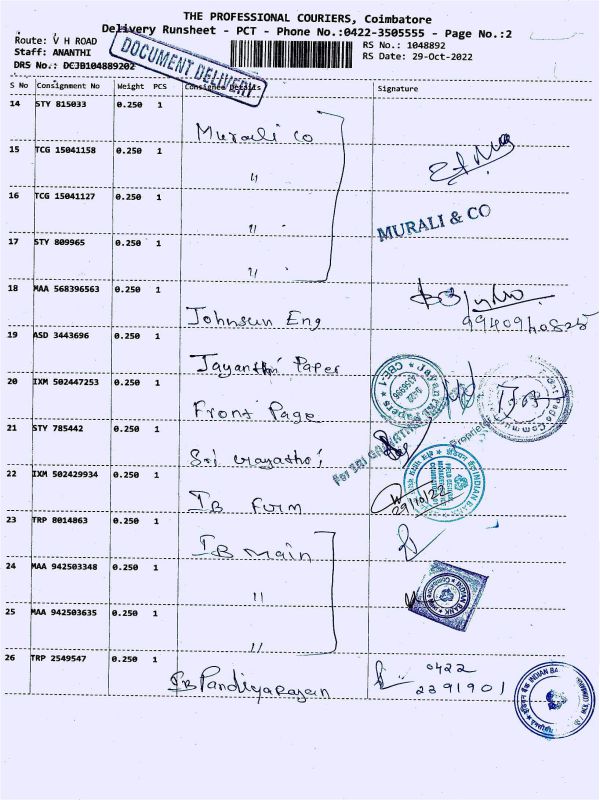 THE PROFESSIONAL COURIERS, Coimbatore
Delivery Runsheet - PCT - Phone No.:0422-3505555 - Page No.:2
Route: V H ROAD
RS No.: 1048892
Staff: ANANTHI
RS Date: 29-Oct-2022
DRS No.: DCJB104889202
DOCUMENT DELIVERY
S No Consignment No Weight PCS Consignee Details Signature
14 STY 815033 0.250 1
Murali Co
15 TCG 15041158 0.250 1
"
16 TCG 15041127 0.250 1
"
MURALI & CO
17 STY 809965 0.250 1
"
18 MAA 568396563 0.250 1
Johnsun Eng
19 ASD 3443696 0.250 1
Jayanthi Paper
20 IXM 502447253 0.250 1
Front Page
21 STY 785442 0.250 1
Proprietor
22 IXM 502429934 0.250 1
INDIAN BANK
IB Furm
29/10/22
23 TRP 8014863 0.250 1
IB Main
24 MAA 942503348 0.250 1
"
INDIAN BANK
25 MAA 942503635 0.250 1
"
26 TRP 2549547 0.250 1
IB Pandiyarajan
0422
2391901